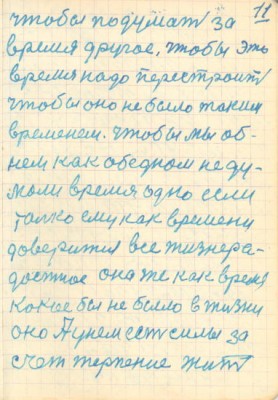 11
чтобы подумать за
время другое, чтобы это
время надо перестроить
чтобы оно не было таким
временем. чтобы мы об-
нем как обедном не ду-
мали время одно если
толко ему как времени
доверится все жизнера-
достное она же как время
какое бы не было в жизни
оно А унем есть силы за
счет терпение жить